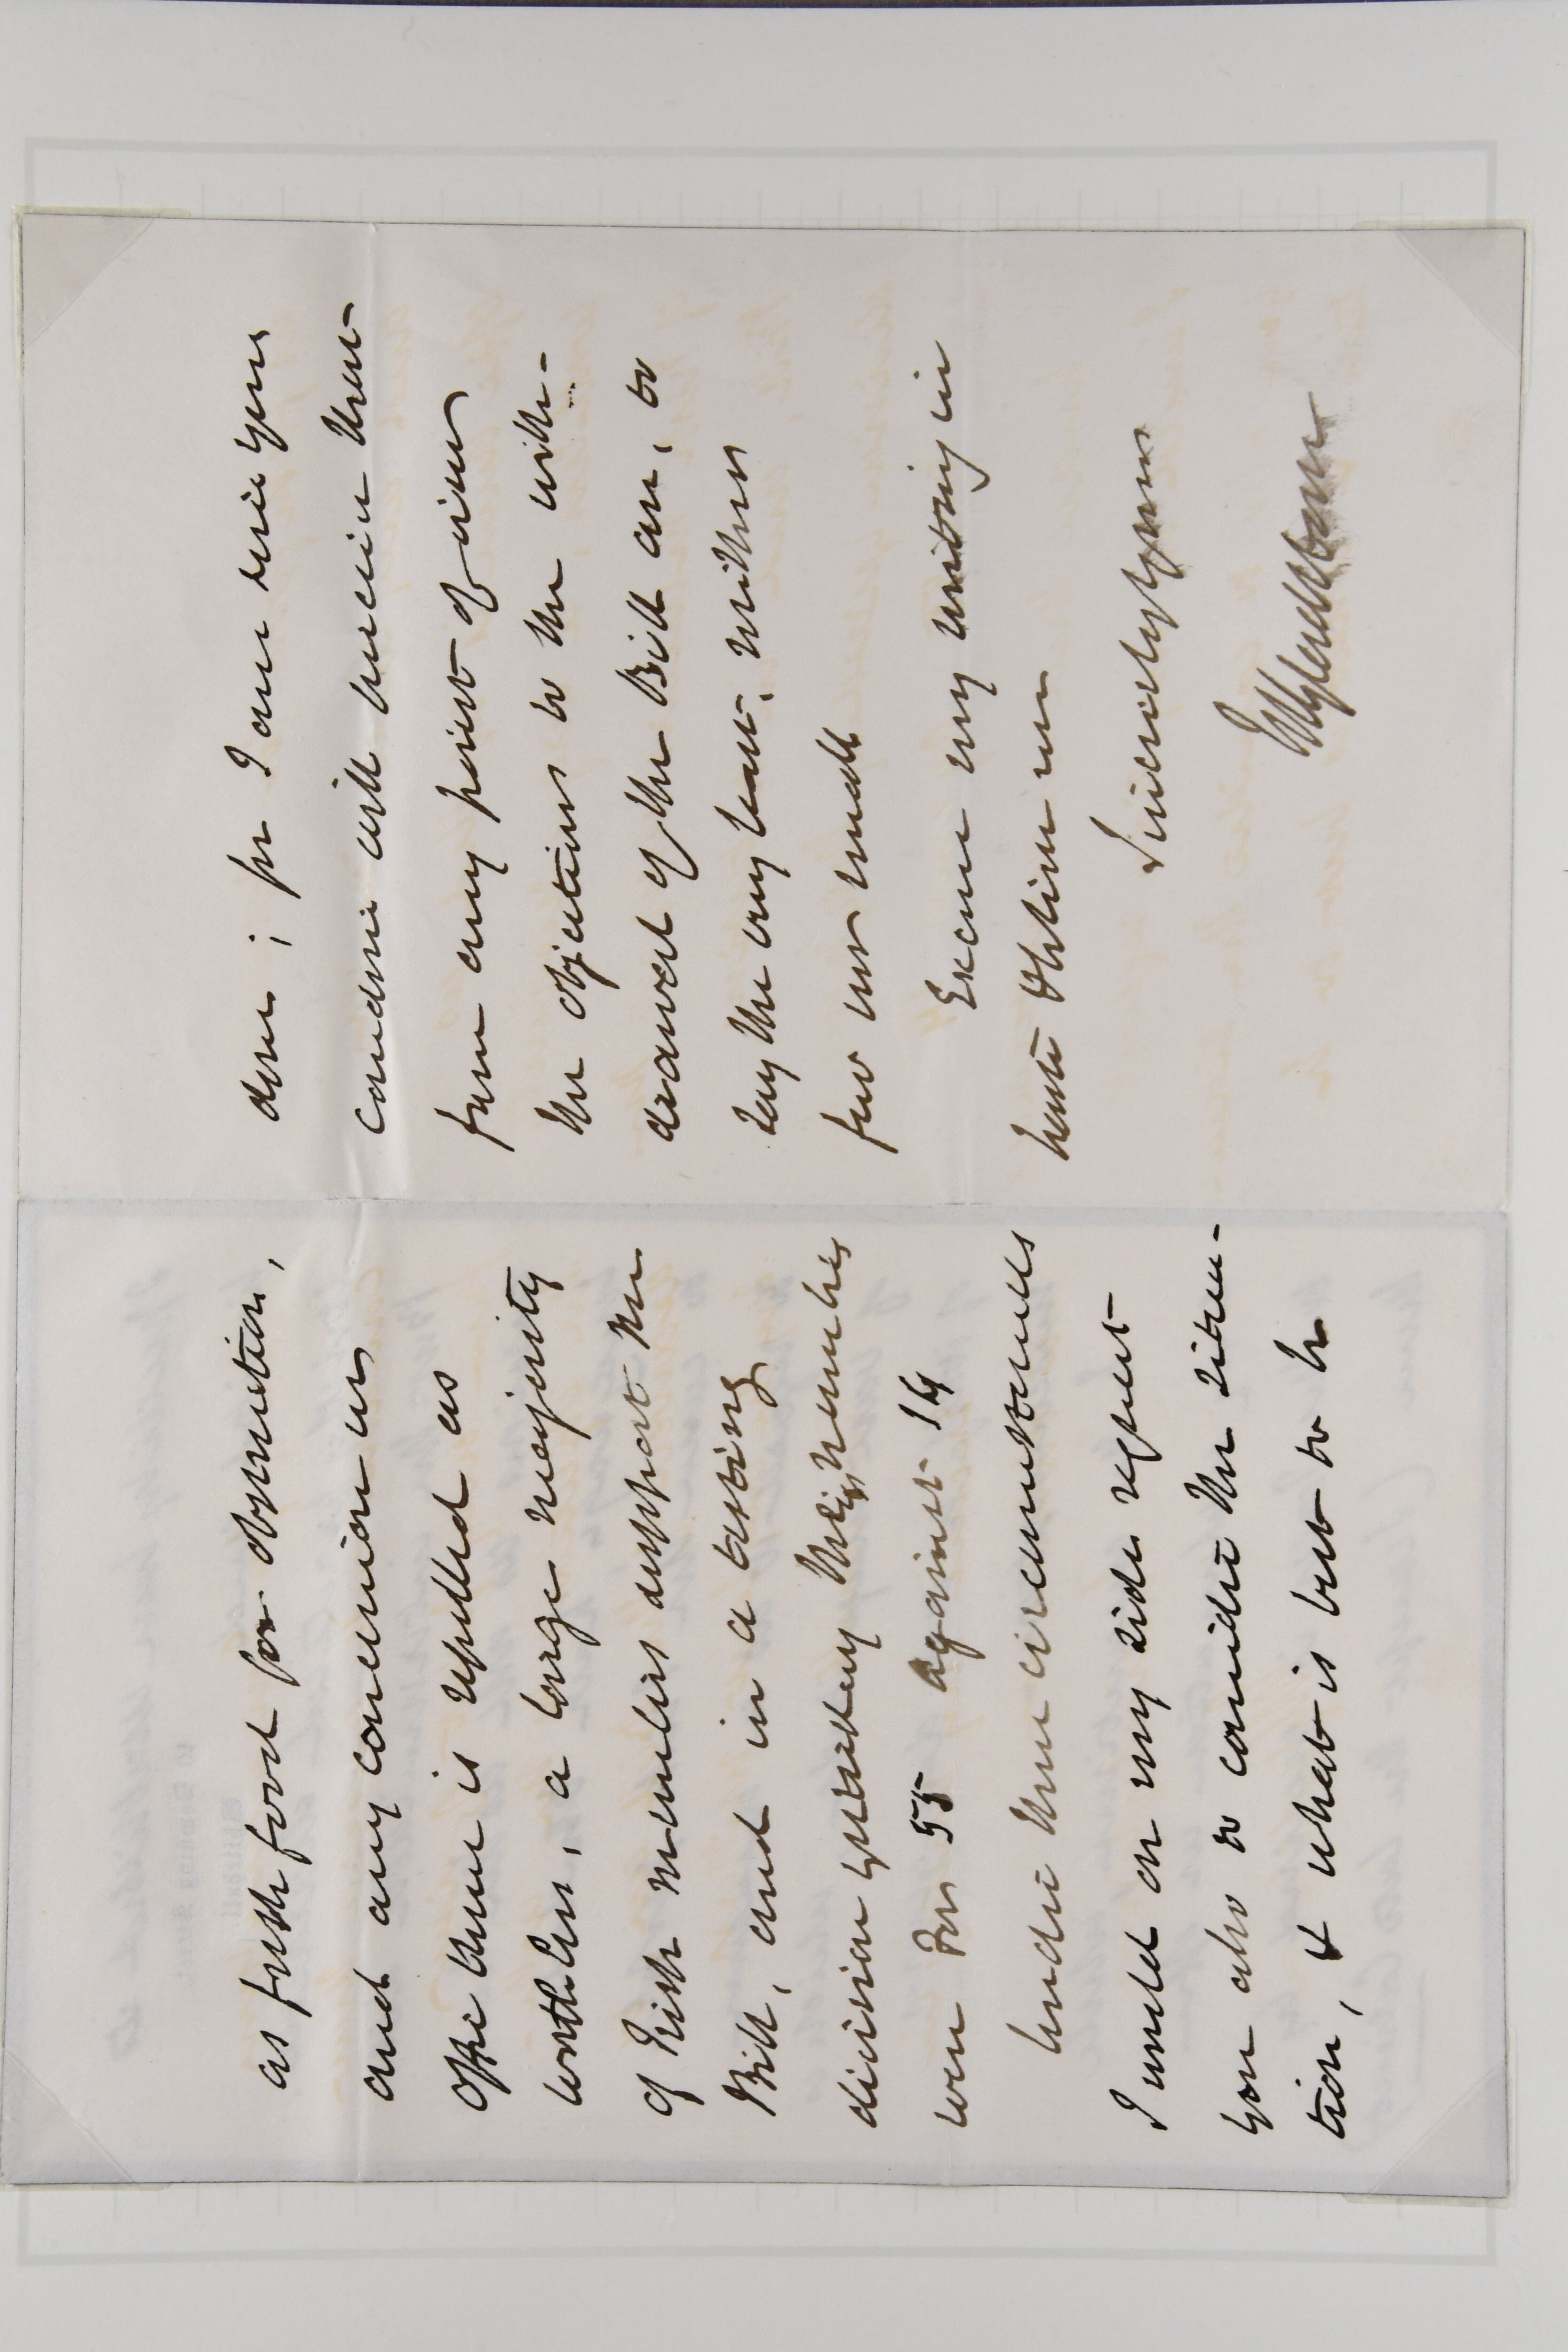 as fresh food for obstruction,
and any concession we
offer them is repelled as
worthless, a large majority
of Irish members support the
Bill, and in a testing
division yesterday Irish members
were For 55 against 14
Under these circumstances
I would on my side request
you also to consider the situa-
tion, & what is best to be
done; for I am sure you
consider will perceive that
from any point of view
the objections to the with-
drawal of the Bill are, to
say the very least, neither
few nor small
Excuse my writing in
haste & believe me
Sincerely yours
W E Gladstone